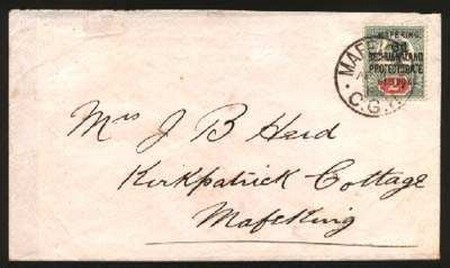 MAFEKING,
BECHUANALAND
PROTECTORATE
MAFE
C.G.
Mrs J B Heid
Kirkpatrick Cottage
Mafeking